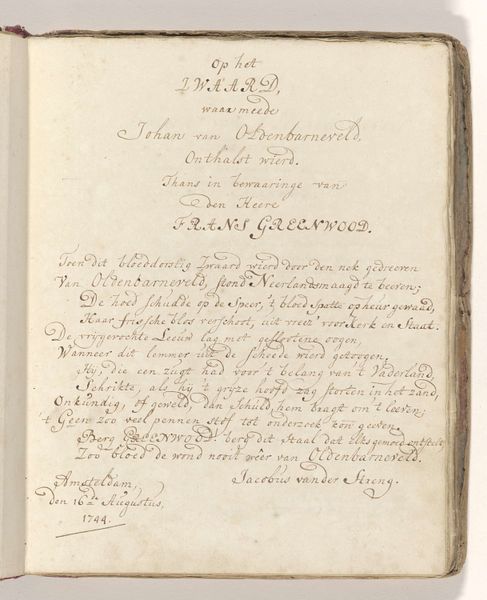 Op het
ZWAARD,
waar meede
Johan van Oldenbarneveld.
Onthalst wierd.
Thans in bewaaringe van
den Heere
FRANS GREENWOOD.
Toen dit bloeddorstig Zwaard wierd door den nek gedreeven
Van Oldenbarneveld, stond Neerlandsmaagd te beeven;
De hoed schudde op de Speer, 't bloed spatte op heur gewaad,
Haar frissche blos verschoot, uit vreez' voor Kerk en Staat.
De vrijgevochte Leeuw lag met geslootene oogen,
Wanneer dit lemmer uit de scheede wierd getoogen,
Hij, die een zugt had voor 't belang van 't Vaderland,
Schrikte, als hij 't grijze hoofd zag storten in het zand,
Onkundig, of geweld, dan Schuld, hem bragt om 't leeven;
't Geen zoo veel pennen stof tot onderzoek kon geeven.
Berg GREENWOOD berg dit Staal dat elks gemoed ontstelt
Zoo bloed' de wond nooit wêer van Oldenbarneveld.
Amsteldam, Jacobus vander Streng.
den 16de Augustus,
1744.